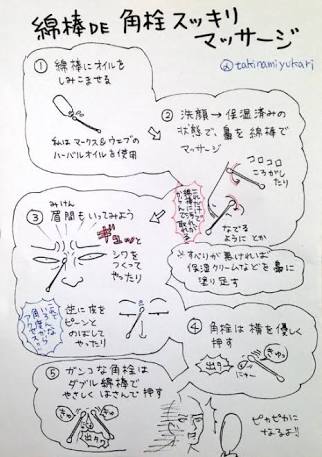 綿棒DE 角栓スッキリ
マッサージ
@takinamiyukari
① 綿棒にオイルを
しみこませる
私はマークス&ウェブの
ハーバルオイルを使用
② 洗顔→保湿済みの
状態で、鼻を綿棒で
マッサージ
コロコロ
ころがし
たり
なでる
ようにとか
※すべりが悪ければ
保湿クリームなどを鼻に
塗り足す
③ 眉間もいってみよう
みけん
ギュッと
シワを
つくって
やったり
逆に皮を
ピーンと
のばして
やったり
④ 角栓は横を優しく
押す
出タッ
きゅっ
にゅー
⑤ ガンコな角栓は
ダブル綿棒で
やさしくはさんで押す
きゅ
きゅ
出タッ
ピカピカに
なるよ!!